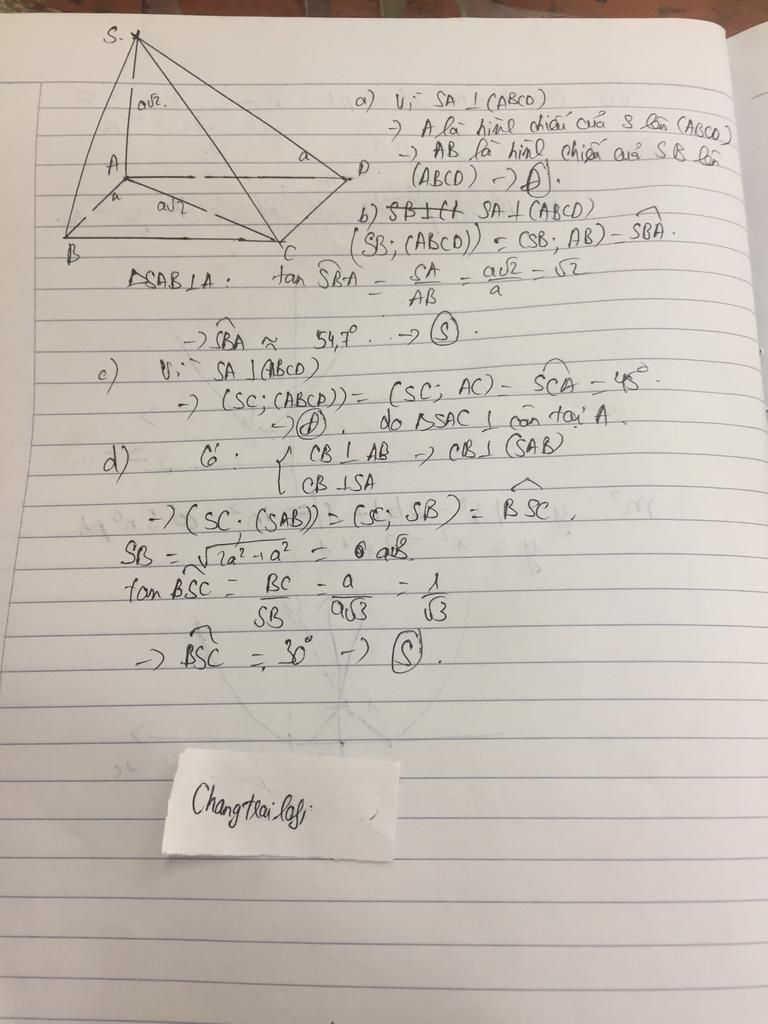 S.
a√2.
A
a
D
a
a√2
B
C
a) Vì SA ⊥ (ABCD)
→ A là hình chiếu của S lên (ABCD)
→ AB là hình chiếu của SB lên
(ABCD) → Đ.
b) SB⊥ SA ⊥ (ABCD)
(SB; (ABCD)) = (SB; AB) = SBA.
ΔSAB⊥A. tan SBA = SA/AB = a√2/a = √2
→ SBA ≈ 54,7° → S.
c) Vì SA ⊥ (ABCD)
→ (SC; (ABCD)) = (SC; AC) = SCA = 45°.
→ Đ. do ΔSAC ⊥ cân tại A.
d) Có: { CB ⊥ AB → CB ⊥ (SAB)
CB ⊥ SA
→ (SC; (SAB)) = (SC; SB) = BSC.
SB = √2a² + a² = a√3.
tan BSC = BC/SB = a/a√3 = 1/√3
→ BSC = 30° → S.